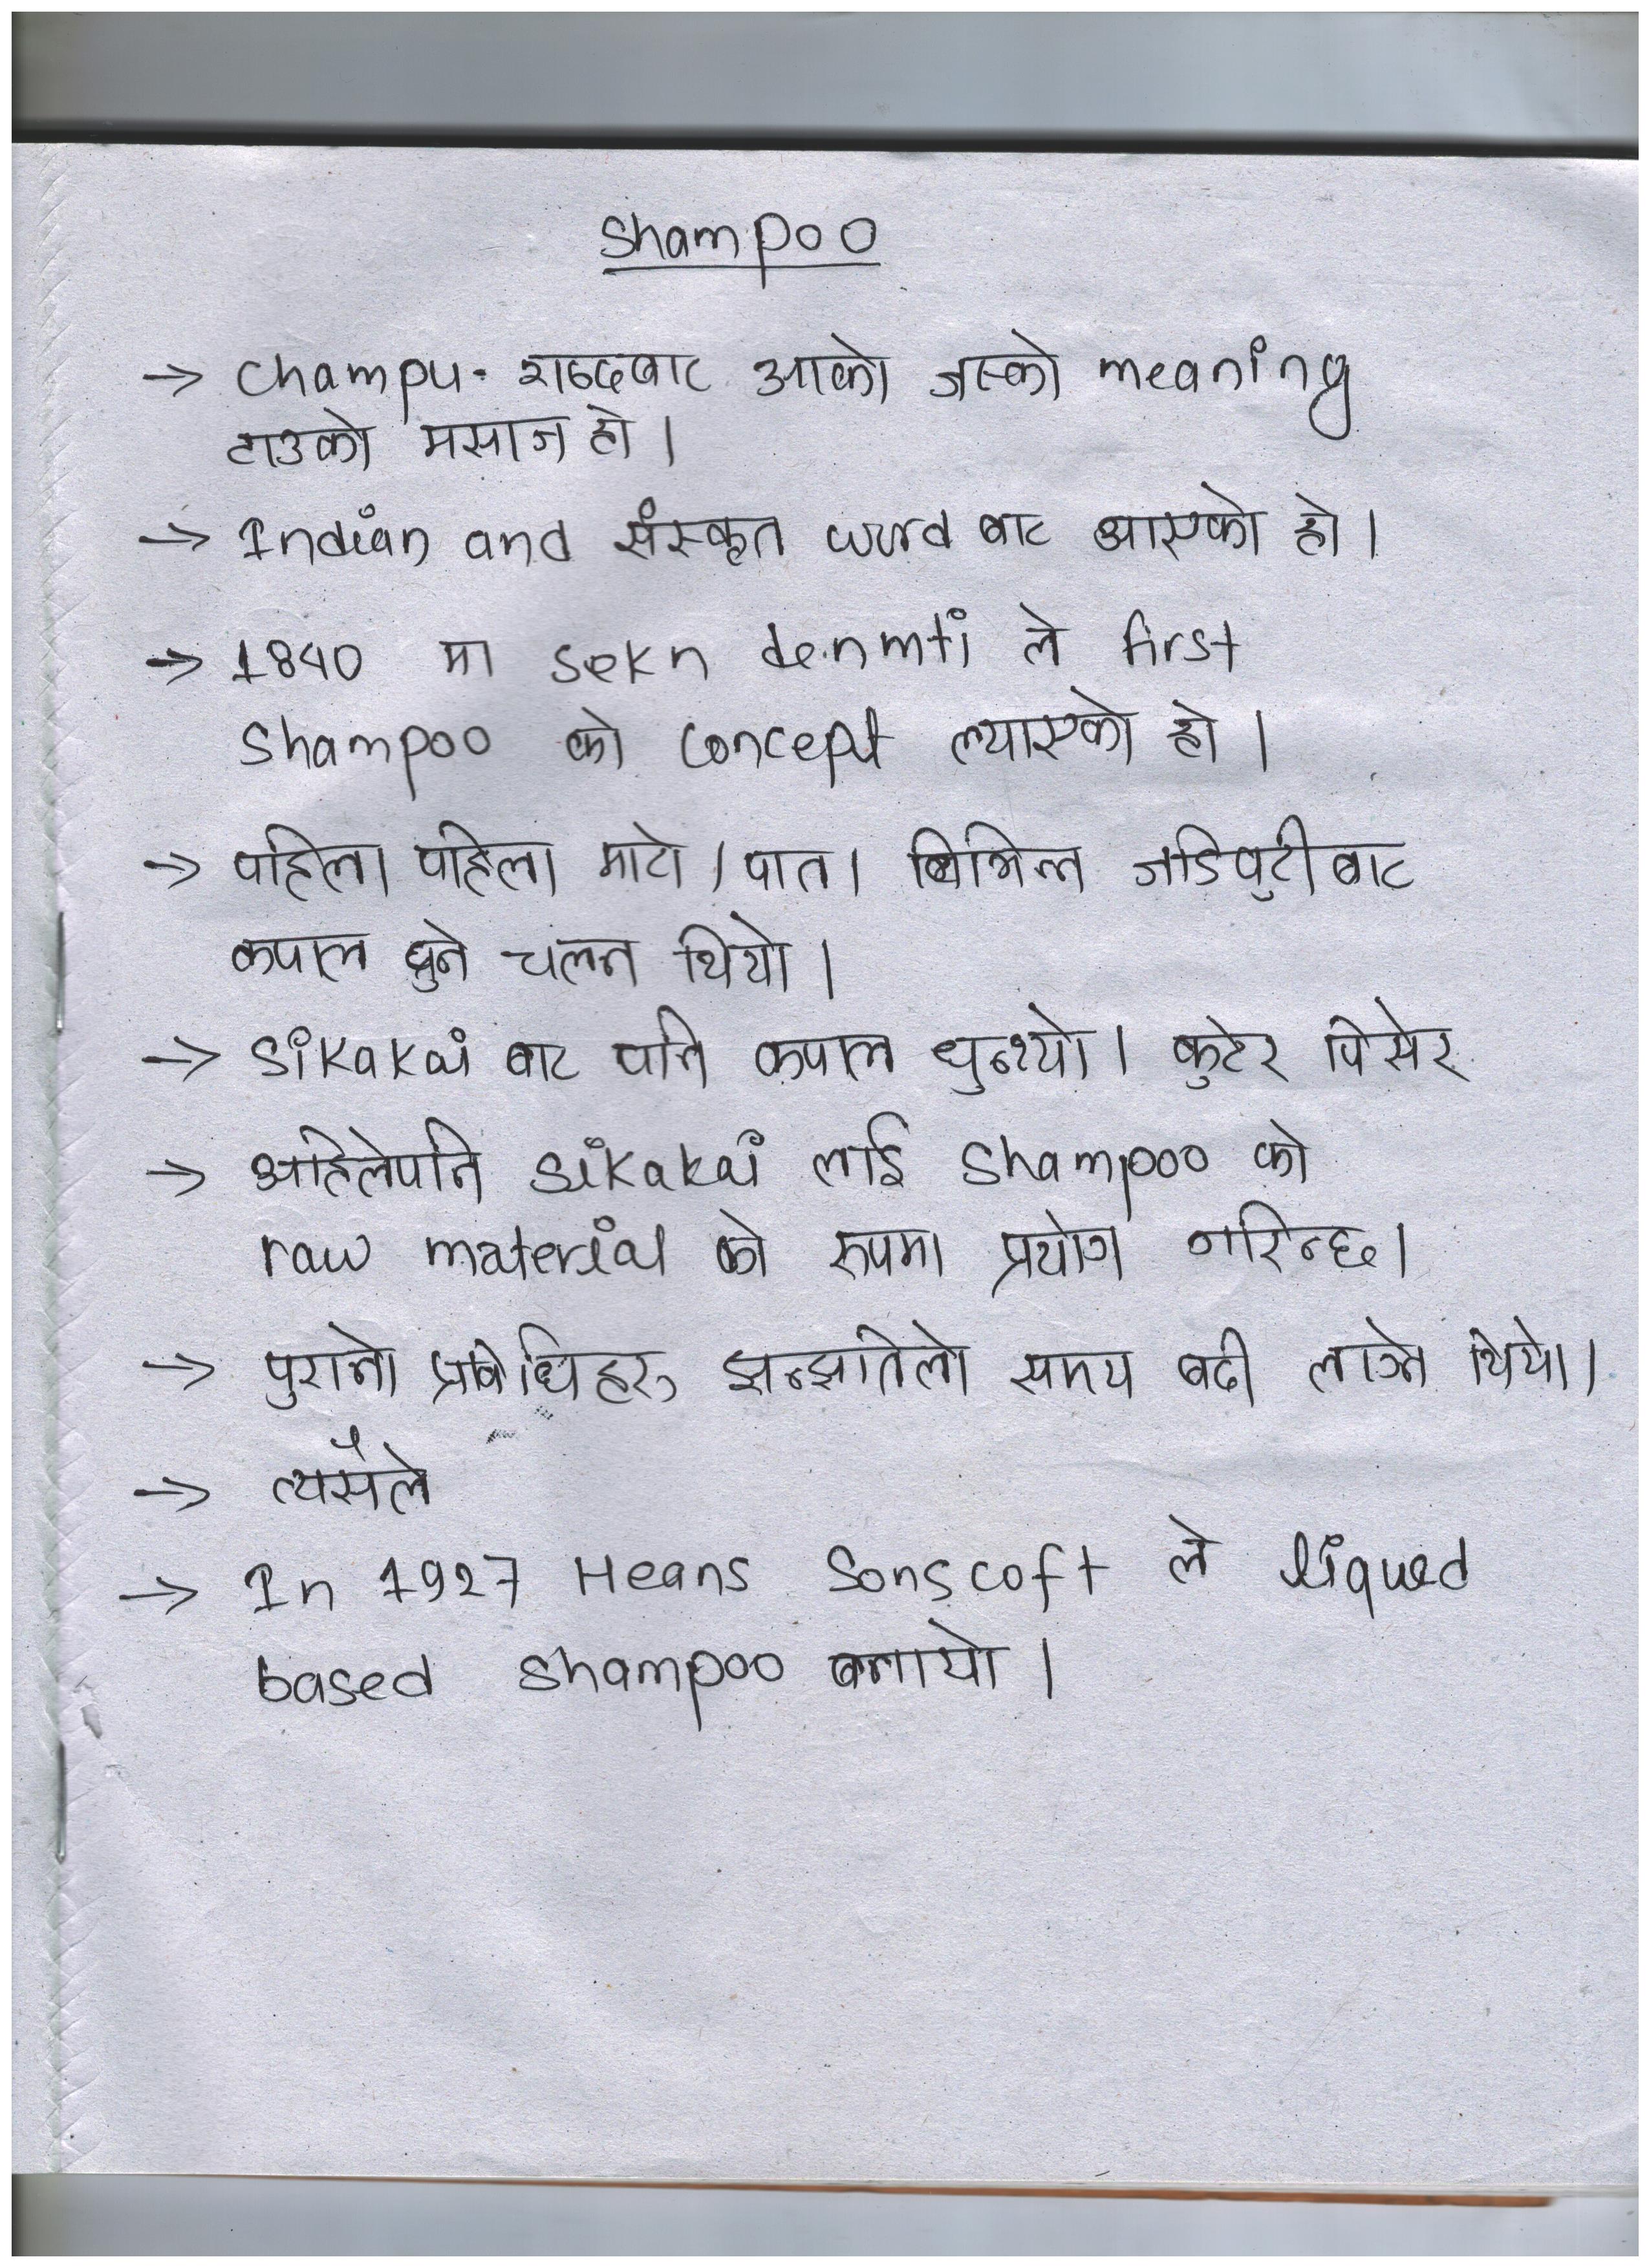 Shampoo
→ Champu. शब्दबाट आको जस्को meaning
टाउको मसाज हो ।
→ Indian and संस्कृत word बाट आएको हो ।
→ 1840 मा sekn denmti ले first
shampoo को concept ल्याएको हो ।
→ पहिला पहिला माटो । पात । बिभिन्न जडिवुटी बाट
कपाल धुने चलन थियो ।
→ sikakai बाट पनि कपाल धुन्थ्यो । कुटेर पिसेर
→ अहिलेपनि sikakai लाई shampoo को
raw material को रुपमा प्रयोग गरिन्छ ।
→ पुरानो प्रबिधिहरु झन्झतिलो समय बढी लाग्ने थियो ।
→ त्यसैले
→ In 1927 Heans Sonscoft ले liqued
based shampoo बनायो ।